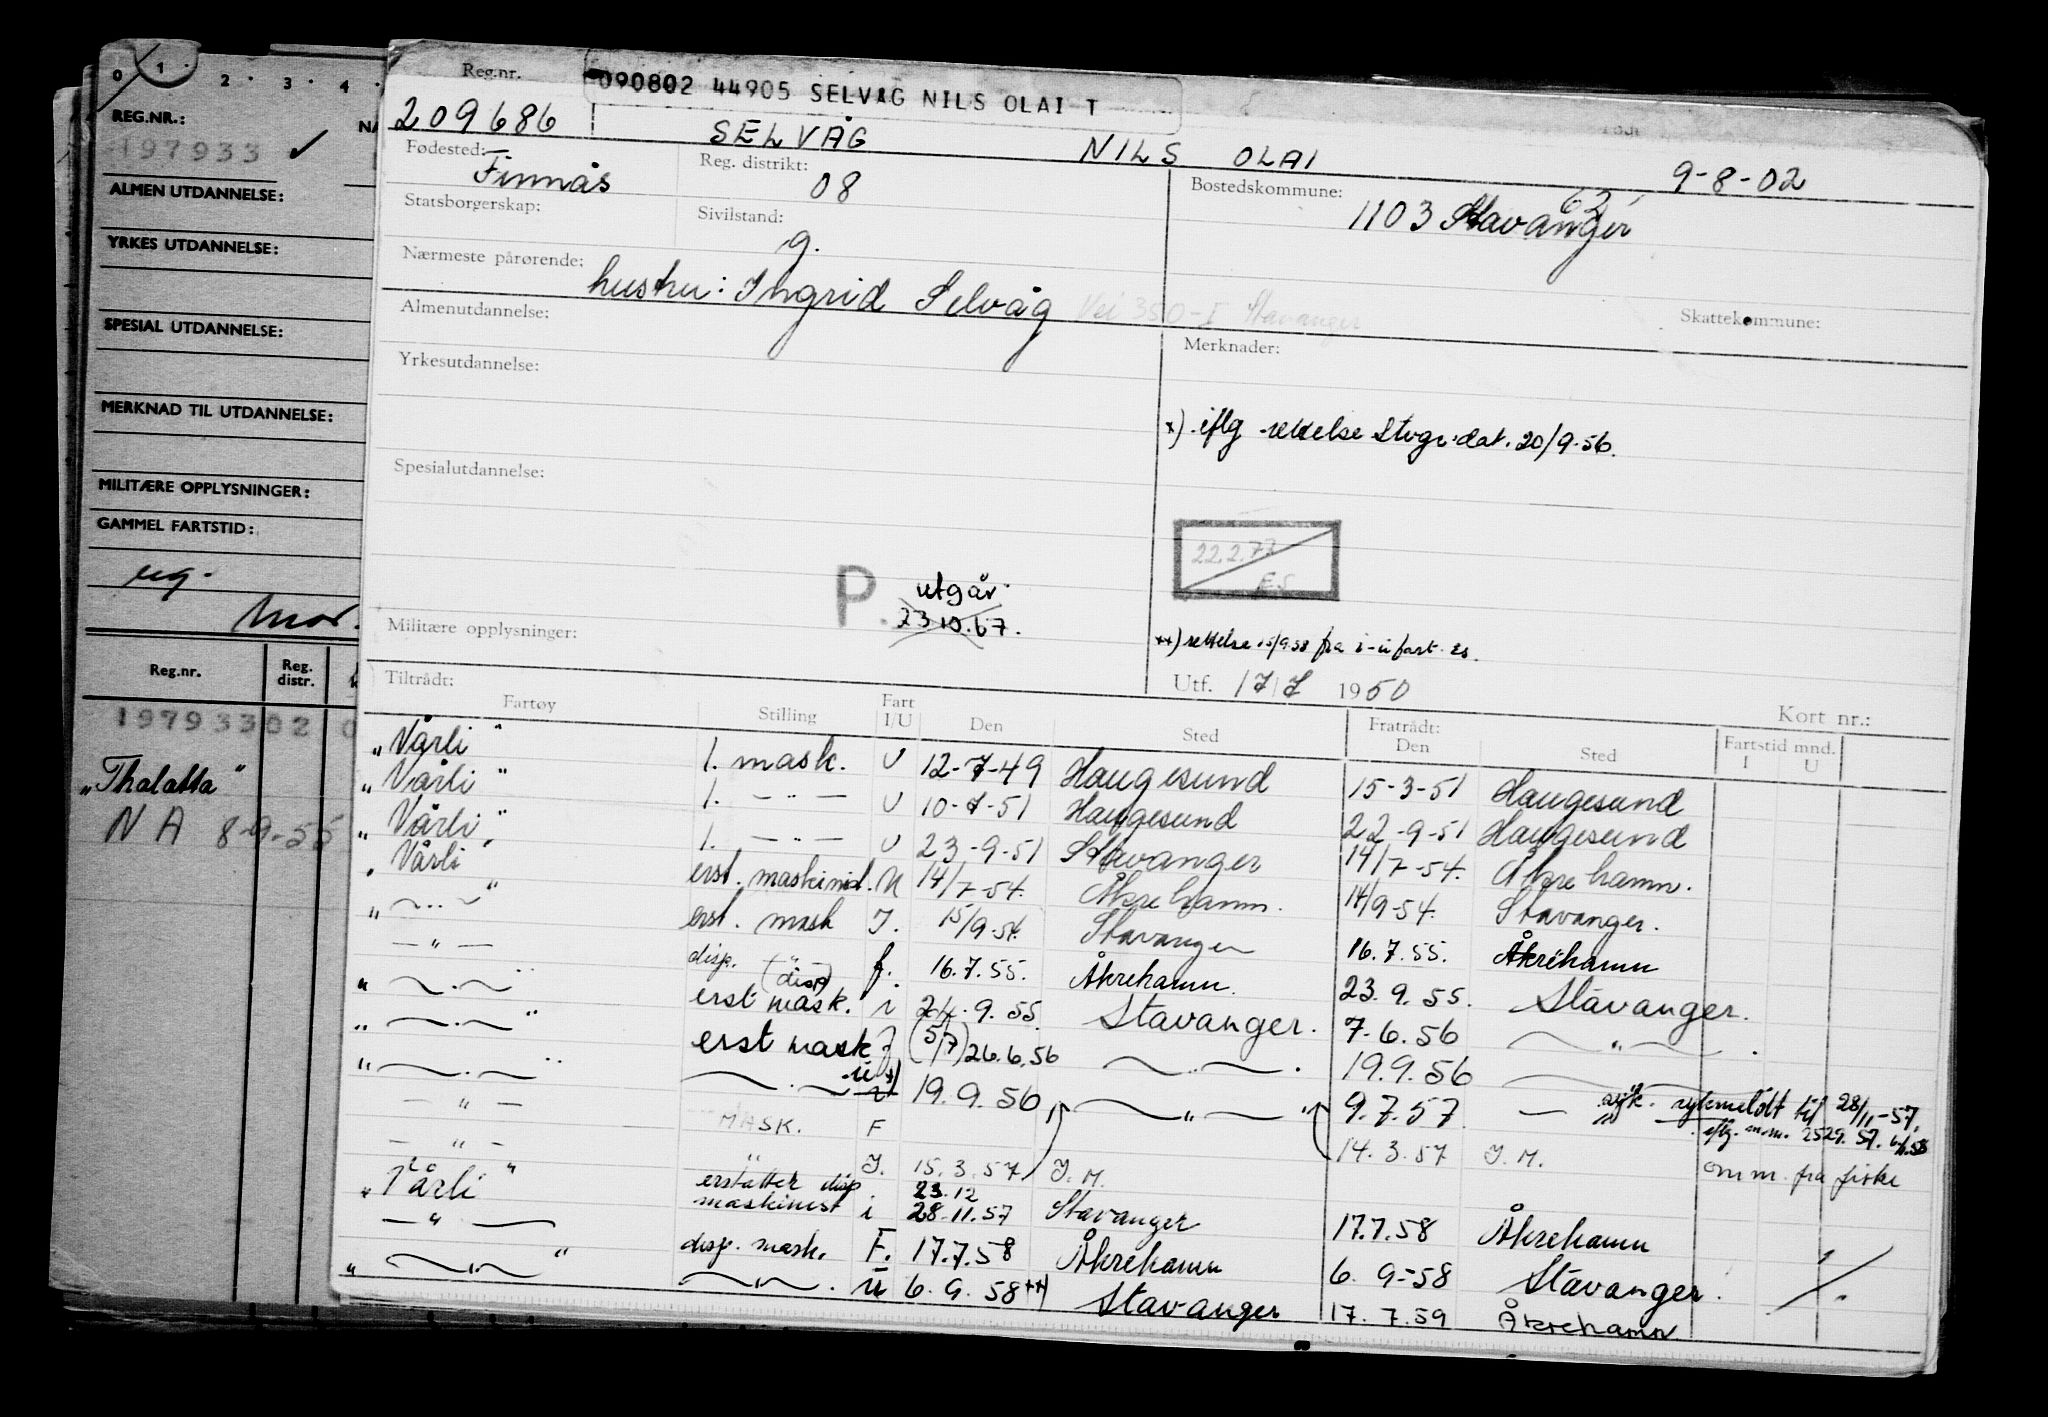 0 1 2 3 4
REG.NR.:
197933 ✓
ALMEN UTDANNELSE:
YRKES UTDANNELSE:
SPESIAL UTDANNELSE:
MERKNAD TIL UTDANNELSE:
MILITÆRE OPPLYSNINGER:
GAMMEL FARTSTID:
ug.
mor.
Reg.nr. Reg. distr.
197933 02 0
"Thalatta"
NA 8-9-55
Reg.nr. 090802 44905 SELVÅG NILS OLAI T
209686 SELVÅG NILS OLAI 9-8-02
Fødested: Finnås Reg. distrikt: 08 Bostedskommune: 1103 Stavanger 62
Statsborgerskap: Sivilstand: g.
Nærmeste pårørende: hustru: Ingrid Selvåg Vei 350-I Stavanger
Almenutdannelse: Skattekommune:
Yrkesutdannelse: Merknader:
x) iflg rettelse Stvgr. dat. 20/9-56.
Spesialutdannelse:
22.2.77
ES
P. utgår
23 10.67.
Militære opplysninger: xx) rettelse 15/9.58 fra i-u fart. Es.
Utf. 17/7 1950
Tiltrådt: Kort nr.:
Fartøy Stilling Fart I/U Den Sted Fratrådt: Den Sted Fartstid mnd. I U
"Vårli" 1. mask. U 12-7-49 Haugesund 15-3-51 Haugesund
"Vårli" 1. —"— U 10-7-51 Haugesund 22-9-51 Haugesund
"Vårli" 1. —"— U 23-9-51 Stavanger 14/7-54. Åkrehamn.
"Vårli" erst. maskinist. U 14/7-54. Åkrehamn. 14/9-54. Stavanger.
"—"—" erst. mask I. 15/9-54. Stavanger 16.7.55. Åkrehamn
—"— disp. —"— f. 16.7.55. Åkrehamn. 23.9.55. Stavanger.
"—"—" erst mask. (disp) i 24.9.55. Stavanger. 7.6.56 —"—.
"—"—" erst mask I (5/7) 26.6.56 —"—. 19.9.56 —"—
"—"—" —"— u x) 19.9.56 —"— 9.7.57 —"— syk. sykmeldt til 28/11-57,
iflg. m.m. 2529. 57.
—"— MASK. F 14.3.57 I.M. omm. fra fiske
—"—" " I. 15.3.57 I.M.
"Vårli" erstatter disp maskinist i 23.12 28.11.57 Stavanger 17.7.58 Åkrehamn
—"— disp. mask. F. 17.7.58 Åkrehamn 6.9-58 Stavanger.
"—"—" —"—. u 6.9.58 xx) Stavanger 17.7.59 Åkrehamn